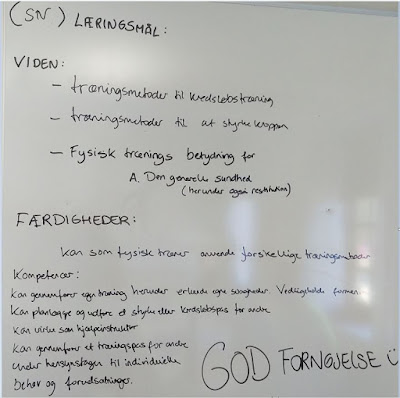 (SN) LÆRINGSMÅL:
VIDEN:
— træningsmetoder til kredsløbstræning
— træningsmetoder til at styrke kroppen
— Fysisk trænings betydning for
A. Den generelle sundhed
(herunder også restitution)
FÆRDIGHEDER:
Kan som fysisk træner anvende forskellige træningsmetoder
Kompetencer:
Kan gennemføre egen træning herunder erkende egne svagheder. Vedligeholde formen.
Kan planlægge og udføre et styrke eller kredsløbspas for andre
Kan virke som hjælpeinstruktør
Kan gennemføre et træningspas for andre
under hensynstagen til individuelle
behov og forudsætninger.
GOD FORNØJELSE :